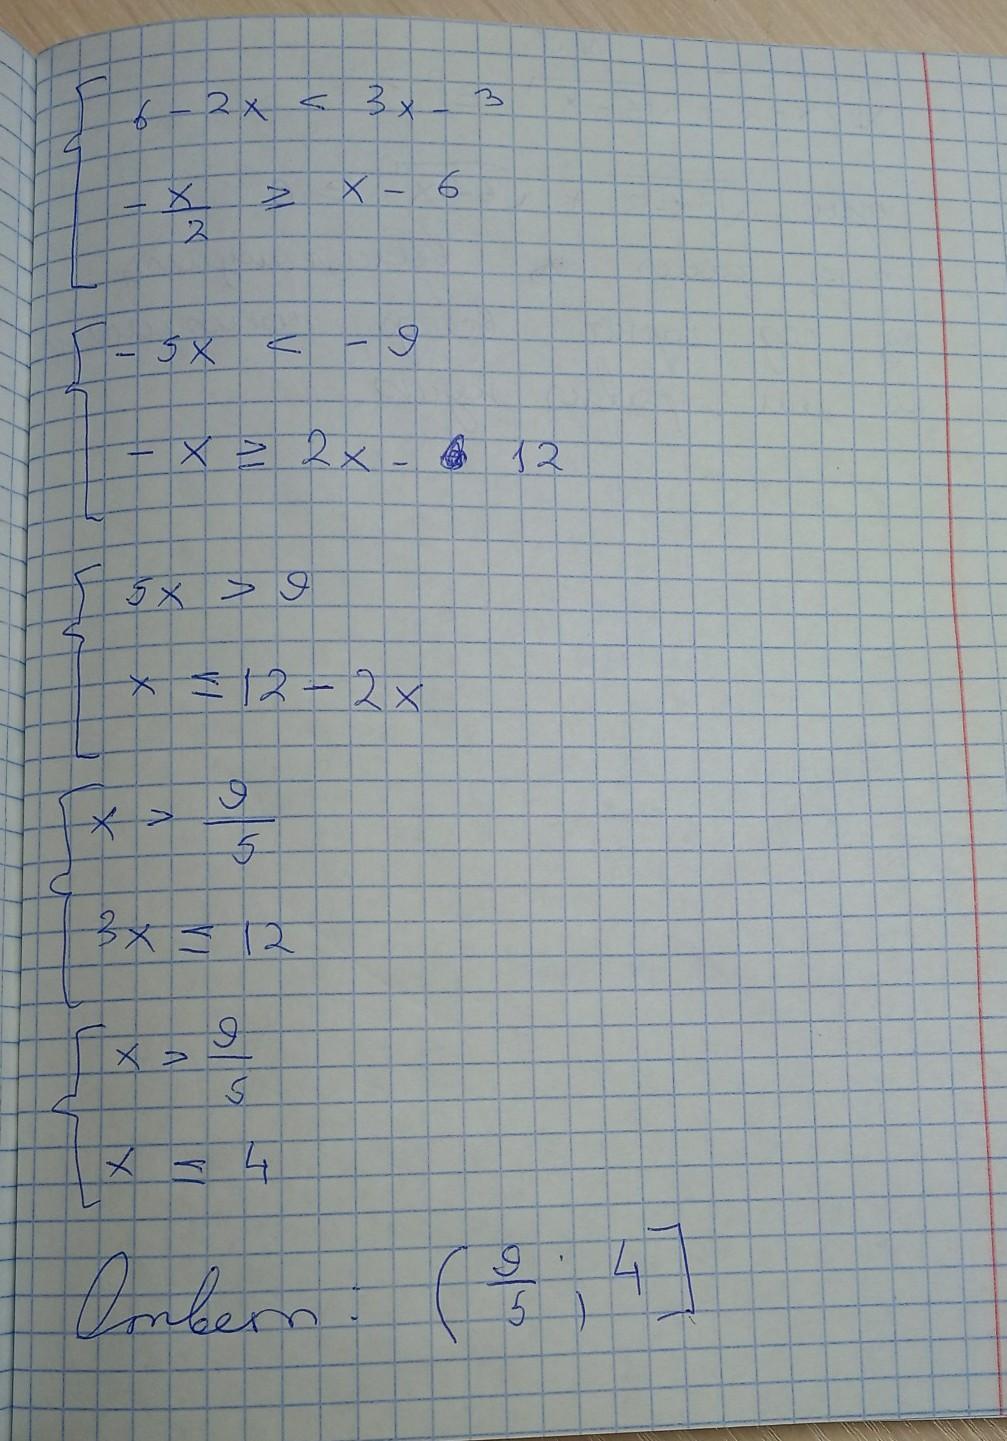 6 - 2x < 3x - 3
- x/2 ≥ x - 6
- 5x < - 9
- x ≥ 2x - 12
5x > 9
x ≤ 12 - 2x
x > 9/5
3x ≤ 12
x > 9/5
x ≤ 4
Ответ: (9/5 ; 4]